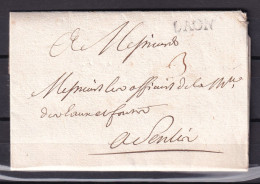 LYON
A Messieurs
3
Messieurs les officiers de la M
des eaux et forets
a Senlis